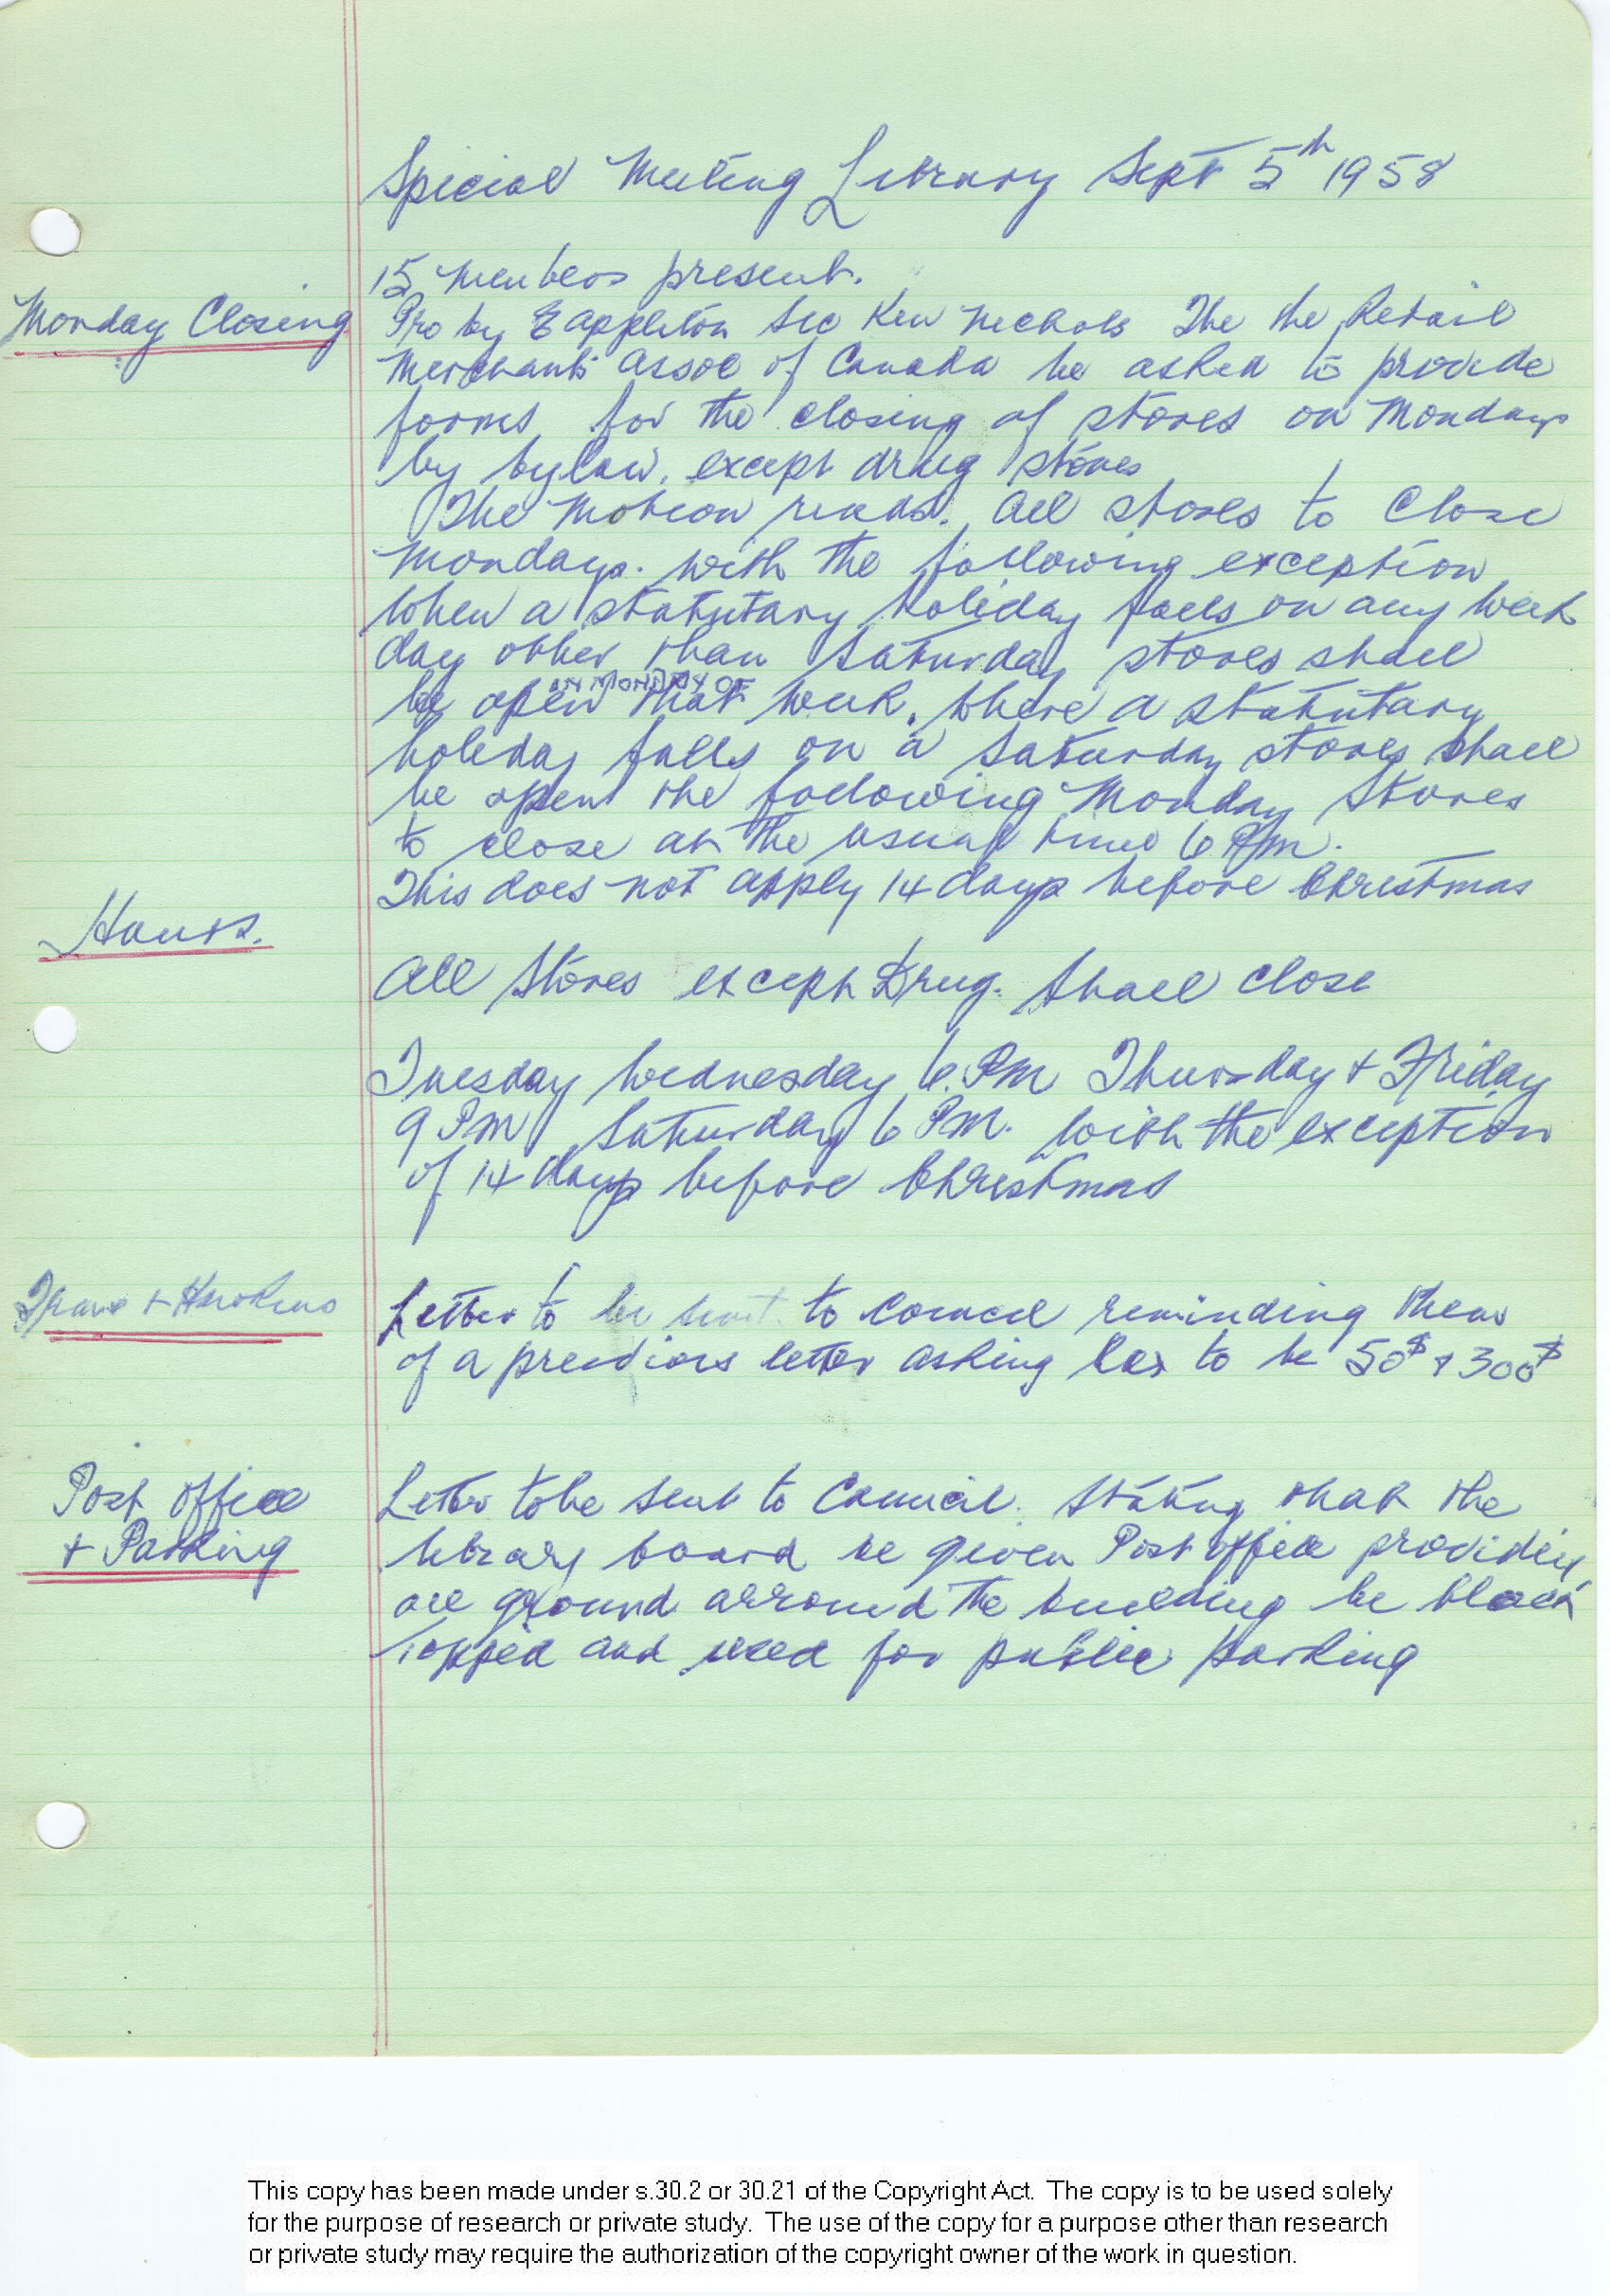 Special Meeting Library Sept 5th 1958
15 members present.
Monday Closing
Pro by E Appleton Sec Ken Nichols The the Retail
Merchants Assoc of Canada be asked to provide
forms for the closing of stores on Mondays
by bylaw, except drug stores
The motion reads. All stores to Close
Mondays. with the following exception
When a statutary holiday falls on any week
day other than Saturday stores shall
be open ON MONDAY OF that week. Where a statutary
holiday falls on a Saturday stores shall
be open the following Monday Stores
to close at the usual time 6 Pm.
This does not apply 14 days before Christmas
Hours.
All Stores except Drug. Shall close
Tuesday Wednesday 6. PM Thursday + Friday
9 PM Saturday 6 PM. With the exception
of 14 days before Christmas
+ Hawkins
Letter to be sent to Council reminding them
of a previous letter asking to be 50$ + 300$
Post Office
+ Parking
Letter to be sent to Council. Stating that the
library board be given Post office providing
all ground arround the building be black
topped and used for public parking
This copy has been made under s.30.2 or 30.21 of the Copyright Act. The copy is to be used solely
for the purpose of research or private study. The use of the copy for a purpose other than research
or private study may require the authorization of the copyright owner of the work in question.